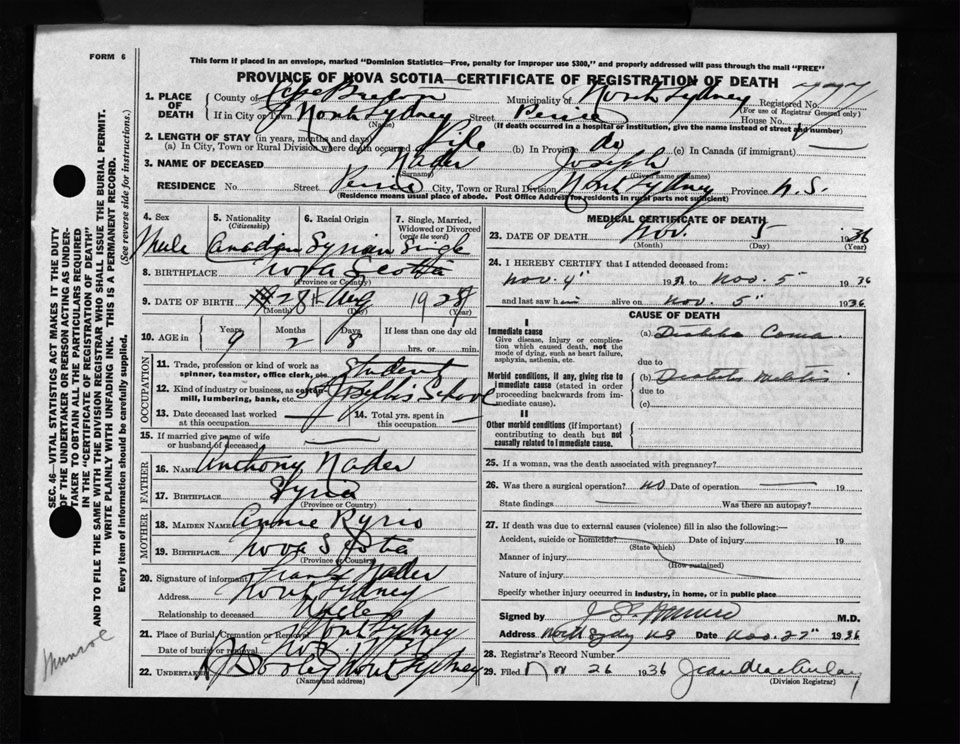 FORM 6
This form if placed in an envelope, marked "Dominion Statistics—Free, penalty for improper use $300," and properly addressed will pass through the mail "FREE"
PROVINCE OF NOVA SCOTIA—CERTIFICATE OF REGISTRATION OF DEATH
1. PLACE OF DEATH
County of Cape Breton Municipality of North Sydney Registered No.
(For use of Registrar General only)
If in City or Town North Sydney Street House No.
(Name) (If death occurred in a hospital or institution, give the name instead of street and number)
2. LENGTH OF STAY (in years, months and days)
(a) In City, Town or Rural Division where death occurred Life (b) In Province do (c) In Canada (if immigrant)
3. NAME OF DECEASED Nader Joseph
(Surname) (Given name or names)
RESIDENCE No. Street City, Town or Rural Division North Sydney Province N.S.
(Residence means usual place of abode. Post Office Address for residents in rural parts not sufficient)
4. Sex Male
5. Nationality (Citizenship) Canadian
6. Racial Origin Syrian
7. Single, Married, Widowed or Divorced (write the word) Single
8. BIRTHPLACE Nova Scotia
(Province or Country)
9. DATE OF BIRTH 28th Aug 1928
(Month) (Day) (Year)
10. AGE Years 9 Months 2 Days 8 If less than one day old
hrs. or min.
OCCUPATION
11. Trade, profession or kind of work as spinner, teamster, office clerk, etc. Student
12. Kind of industry or business, as cotton mill, lumbering, bank, etc. St Josephs School
13. Date deceased last worked at this occupation
14. Total yrs. spent in this occupation
15. If married give name of wife or husband of deceased
FATHER
16. NAME Anthony Nader
17. BIRTHPLACE Syria
(Province or Country)
MOTHER
18. MAIDEN NAME Annie Kyrio
19. BIRTHPLACE Nova Scotia
(Province or Country)
20. Signature of informant Frank Nader
Address North Sydney
Relationship to deceased Uncle
21. Place of Burial, Cremation or Removal North Sydney
Date of burial or removal
22. UNDERTAKER Dooley North Sydney
(Name and address)
MEDICAL CERTIFICATE OF DEATH
23. DATE OF DEATH Nov. 5 1936
(Month) (Day) (Year)
24. I HEREBY CERTIFY that I attended deceased from:
Nov. 4" 193 to Nov. 5" 1936
and last saw him alive on Nov. 5" 1936
CAUSE OF DEATH
I
Immediate cause
Give disease, injury or complication which caused death, not the mode of dying, such as heart failure, asphyxia, asthenia, etc.
(a) Coma
due to
Morbid conditions, if any, giving rise to immediate cause (stated in order proceeding backwards from immediate cause).
(b) Diabetes Mellitis
due to
(c)
II
Other morbid conditions (if important) contributing to death but not causally related to immediate cause.
25. If a woman, was the death associated with pregnancy?
26. Was there a surgical operation? no Date of operation 19
State findings Was there an autopsy?
27. If death was due to external causes (violence) fill in also the following:—
Accident, suicide or homicide? Date of injury 19
(State which)
Manner of injury
(How sustained)
Nature of injury
Specify whether injury occurred in industry, in home, or in public place
Signed by J S Munro M.D.
Address North Sydney NS Date Nov. 27" 1936
28. Registrar's Record Number
29. Filed Nov 26 1936 Jean
(Division Registrar)
SEC. 46—VITAL STATISTICS ACT MAKES IT THE DUTY
OF THE UNDERTAKER OR PERSON ACTING AS UNDER-
TAKER TO OBTAIN ALL THE PARTICULARS REQUIRED
IN THE "CERTIFICATE OF REGISTRATION OF DEATH"
AND TO FILE THE SAME WITH THE DIVISION REGISTRAR WHO SHALL ISSUE THE BURIAL PERMIT.
WRITE PLAINLY WITH UNFADING INK. THIS IS A PERMANENT RECORD.
Every item of information should be carefully supplied. (See reverse side for instructions.)
Munroe